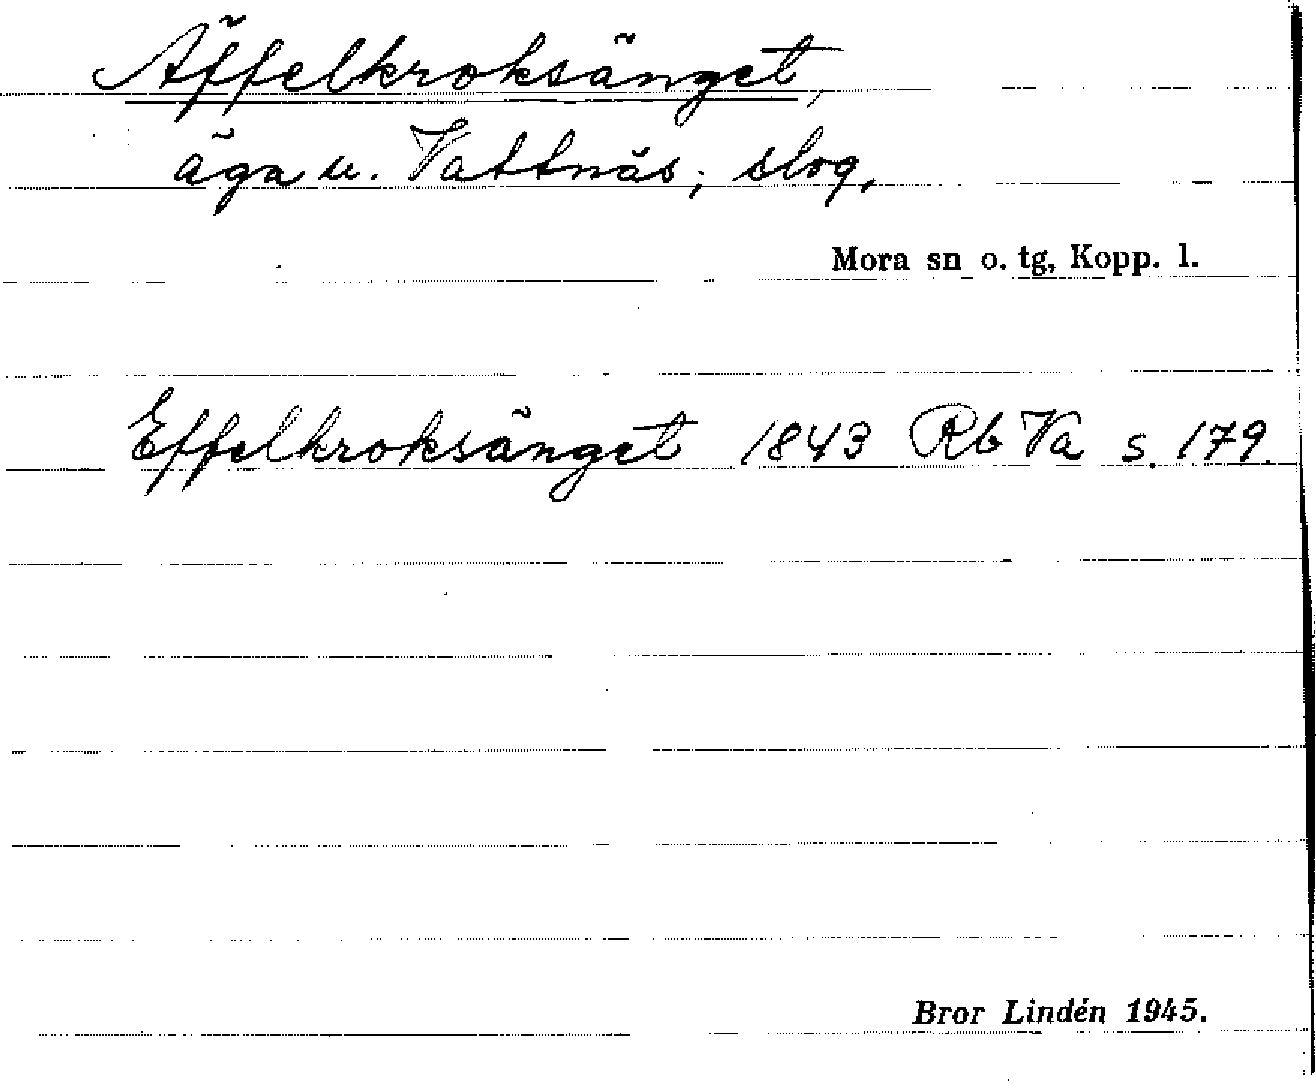 Äffelkroksänget,
äga u. Vattnäs; slog,
Mora sn o. tg, Kopp. l.
Effelkroksänget 1843 Rb Va s. 179
Bror Lindén 1945.